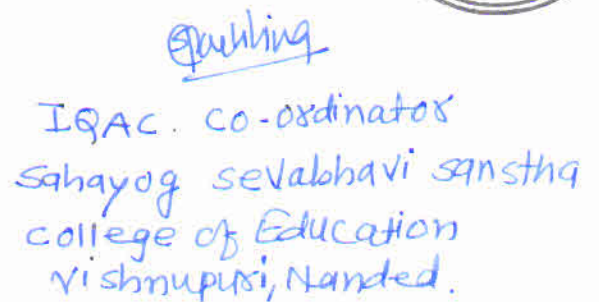 IQAC. co-ordinator
Sahayog sevabhavi sanstha
college of Education
vishnupuri, Nanded.